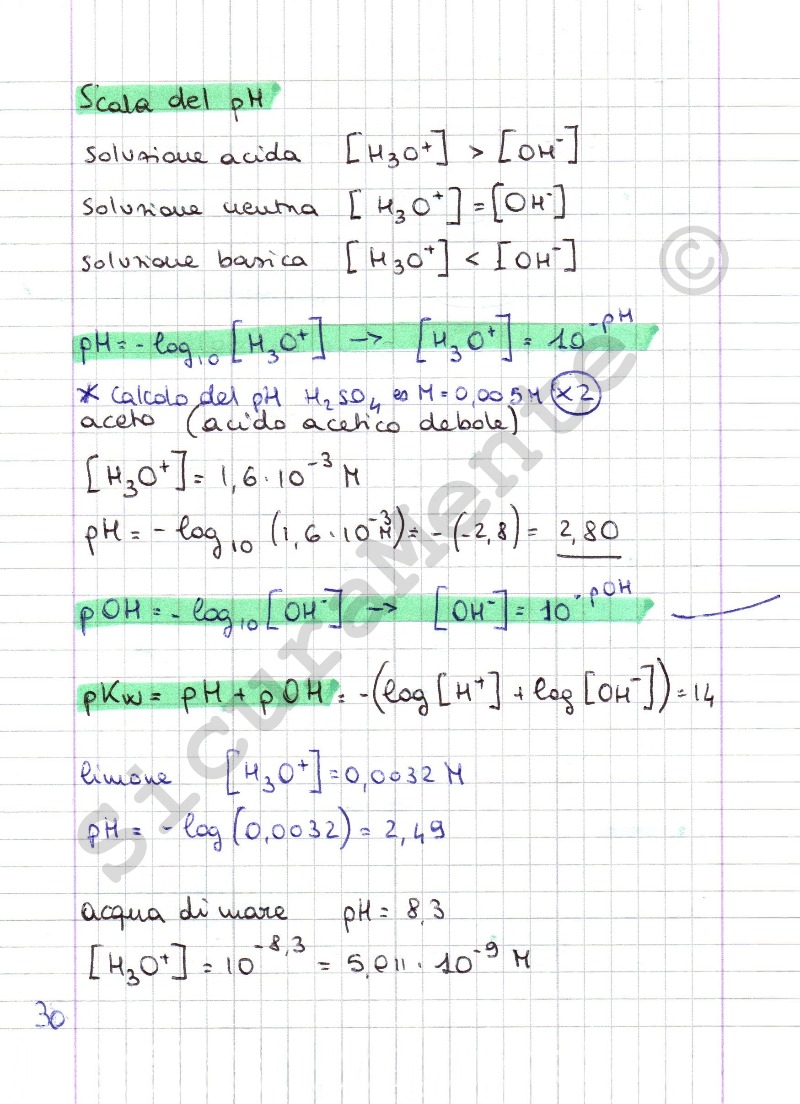 Scala del pH
soluzione acida [H₃O⁺] > [OH⁻]
soluzione neutra [H₃O⁺] = [OH⁻]
soluzione basica [H₃O⁺] < [OH⁻]
pH = -log₁₀ [H₃O⁺] → [H₃O⁺] = 10^-pH
* Calcolo del pH H₂SO₄ M = 0,005M ×2
aceto (acido acetico debole)
[H₃O⁺] = 1,6 · 10⁻³ M
pH = - log₁₀ (1,6 · 10⁻³ M) = - (-2,8) = 2,80
pOH = -log₁₀ [OH⁻] → [OH⁻] = 10^-pOH
pKw = pH + pOH = -(log [H⁺] + log [OH⁻]) = 14
limone [H₃O⁺] = 0,0032 M
pH = -log (0,0032) = 2,49
acqua di mare pH = 8,3
[H₃O⁺] = 10^-8,3 = 5,011 · 10⁻⁹ M
30
SicuraMente ©